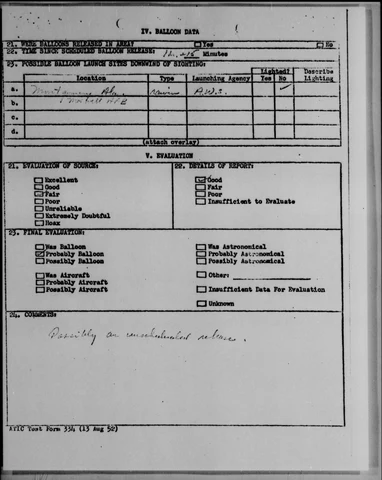 IV. BALLOON DATA
21. WERE BALLOONS RELEASED IN AREA? Yes No
22. TIME SINCE SCHEDULED BALLOON RELEASE: Minutes
23. POSSIBLE BALLOON LAUNCH SITES DOWNWIND OF SIGHTING:
Location Type Launching Agency Lighted? Yes No Describe Lighting
a. Montgomery Ala.
b.
c.
d.
(attach overlay)
V. EVALUATION
21. EVALUATION OF SOURCE: 22. DETAILS OF REPORT:
Excellent Good
Good Fair
Fair Poor
Poor Insufficient to Evaluate
Unreliable
Extremely Doubtful
Hoax
23. FINAL EVALUATION:
Was Balloon Was Astronomical
Probably Balloon Probably Astronomical
Possibly Balloon Possibly Astronomical
Was Aircraft Other:
Probably Aircraft
Possibly Aircraft Insufficient Data For Evaluation
Unknown
24. COMMENTS:
Possibly an unscheduled release.
ATIC Test Form 334 (13 Aug 52)